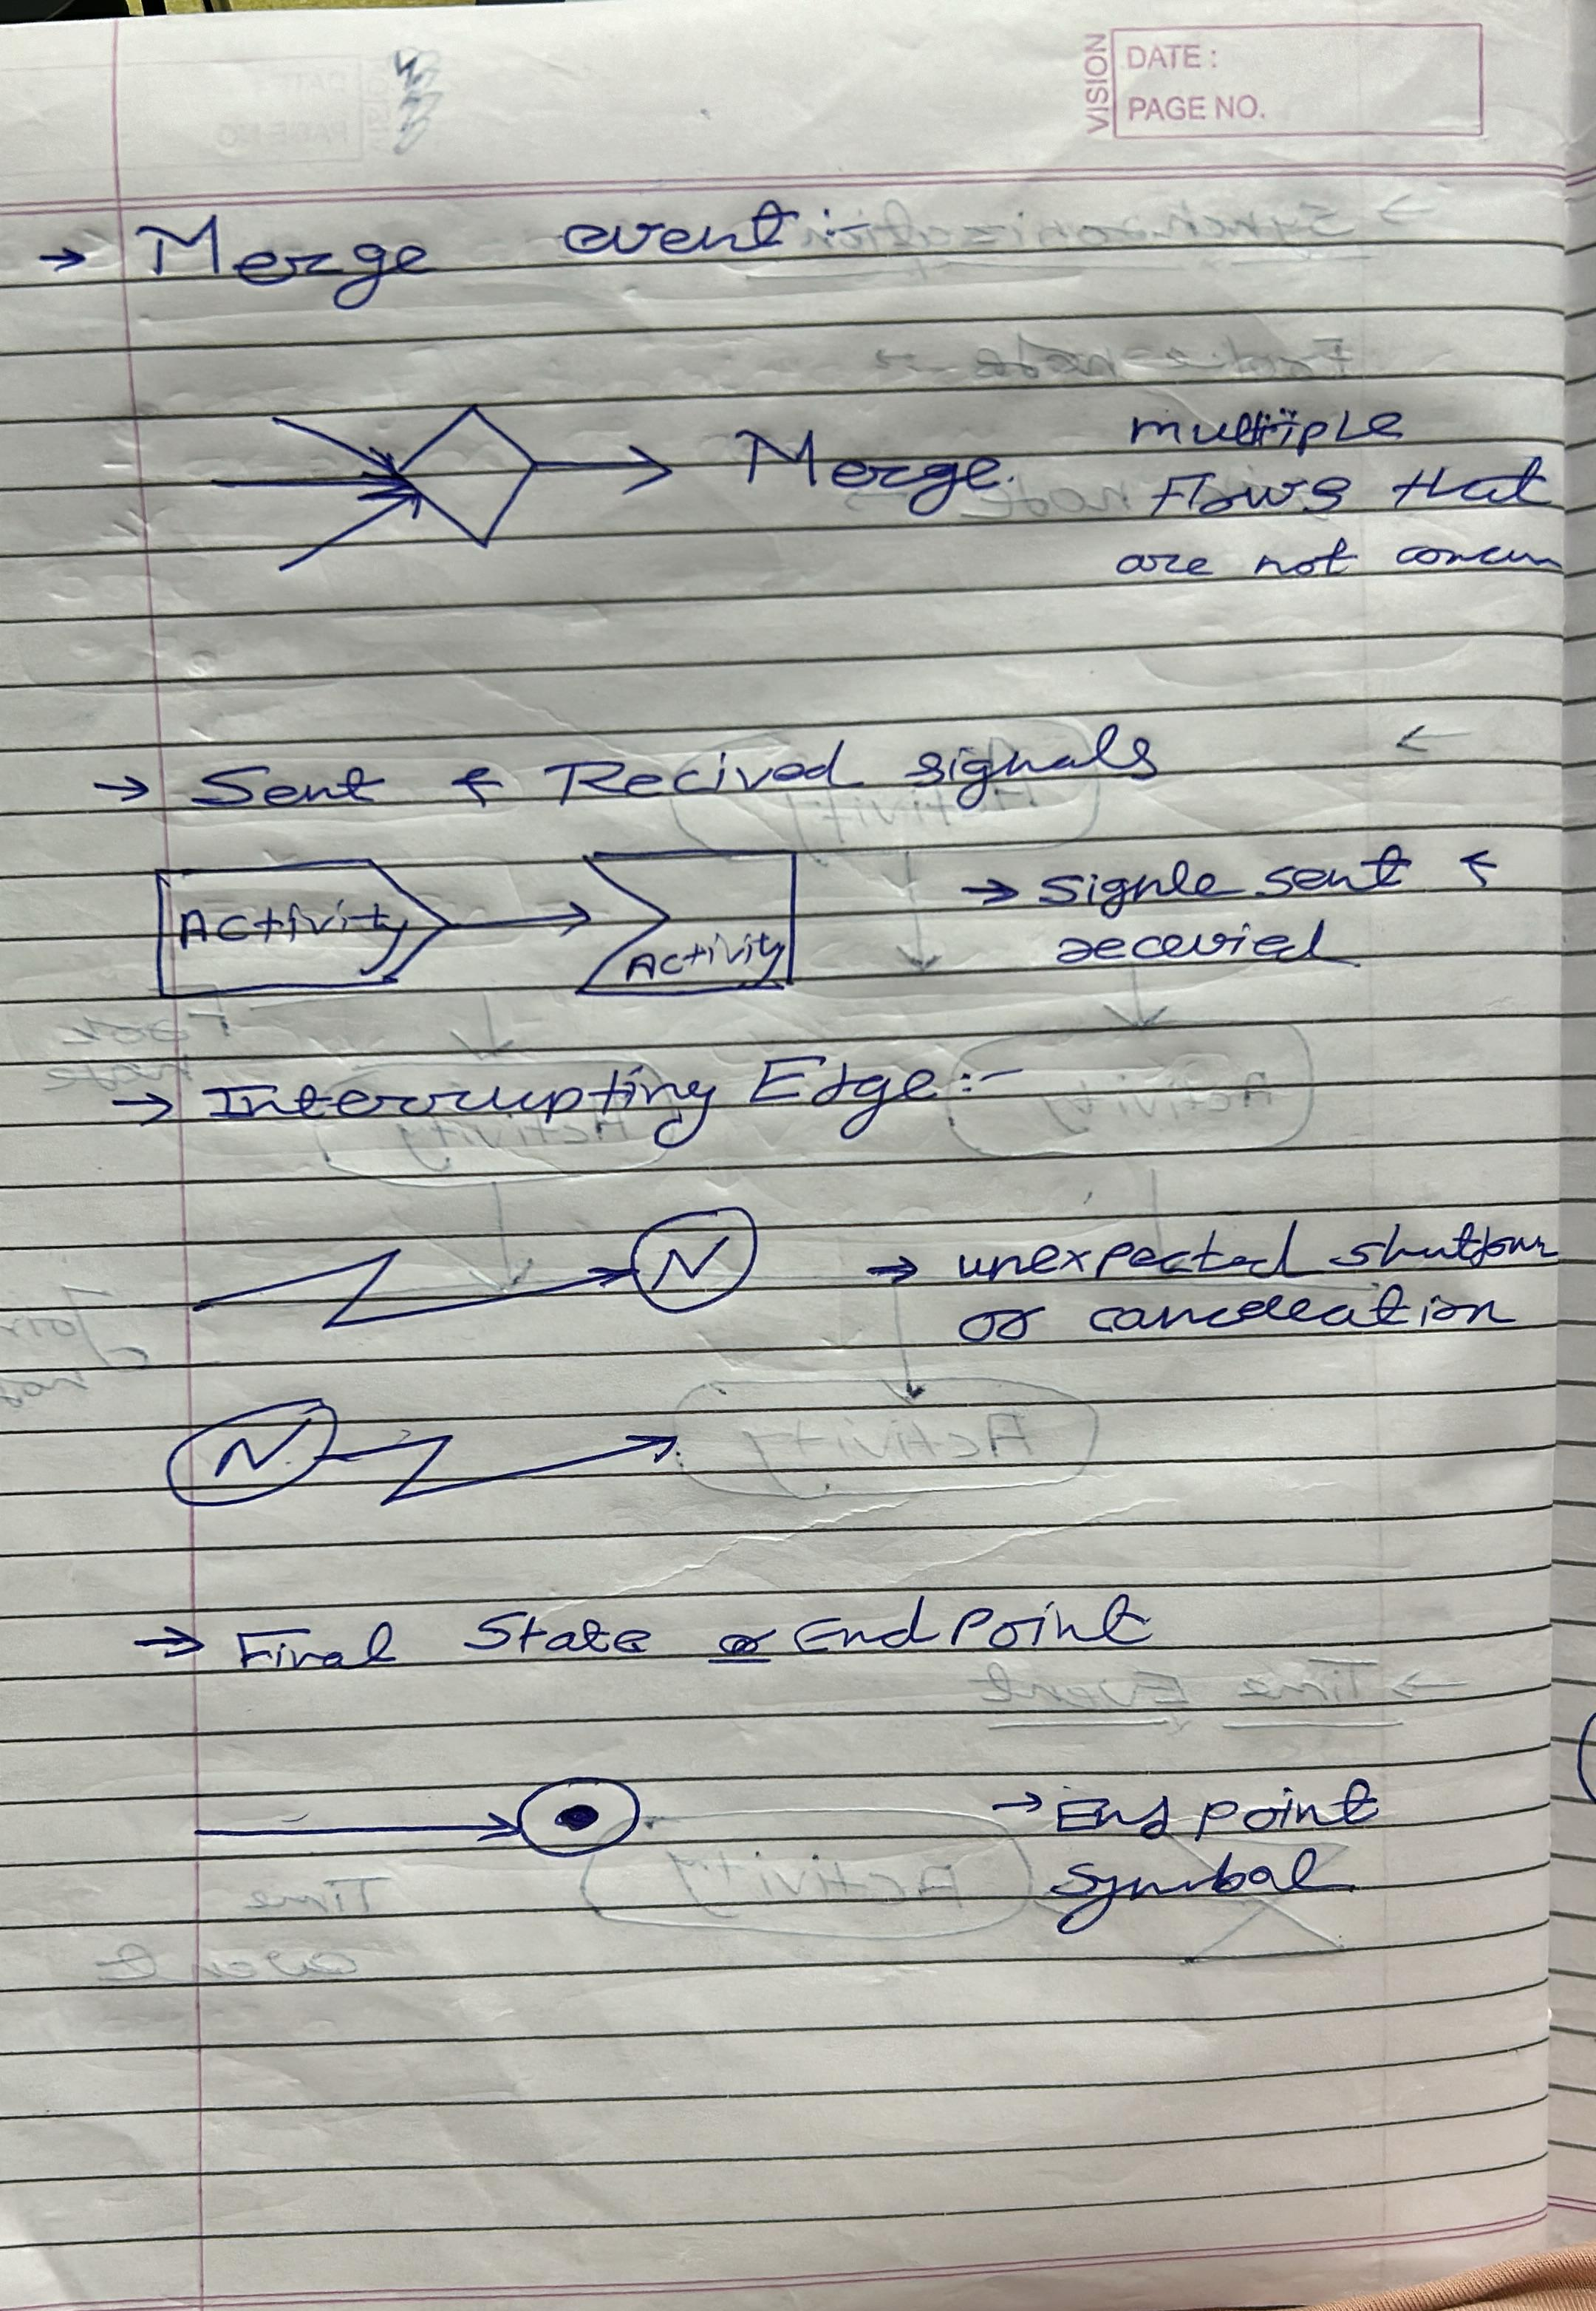 VISION
DATE :
PAGE NO.
→ Merge event :-
Merge. multiple
Flows that
are not concurr
→ Sent & Recived signals
Activity Activity → signle sent &
recevied
→ Interrupting Edge :-
N → unexpected shutdown
or cancellation
N
→ Final State or End Point
→ End point
symbal